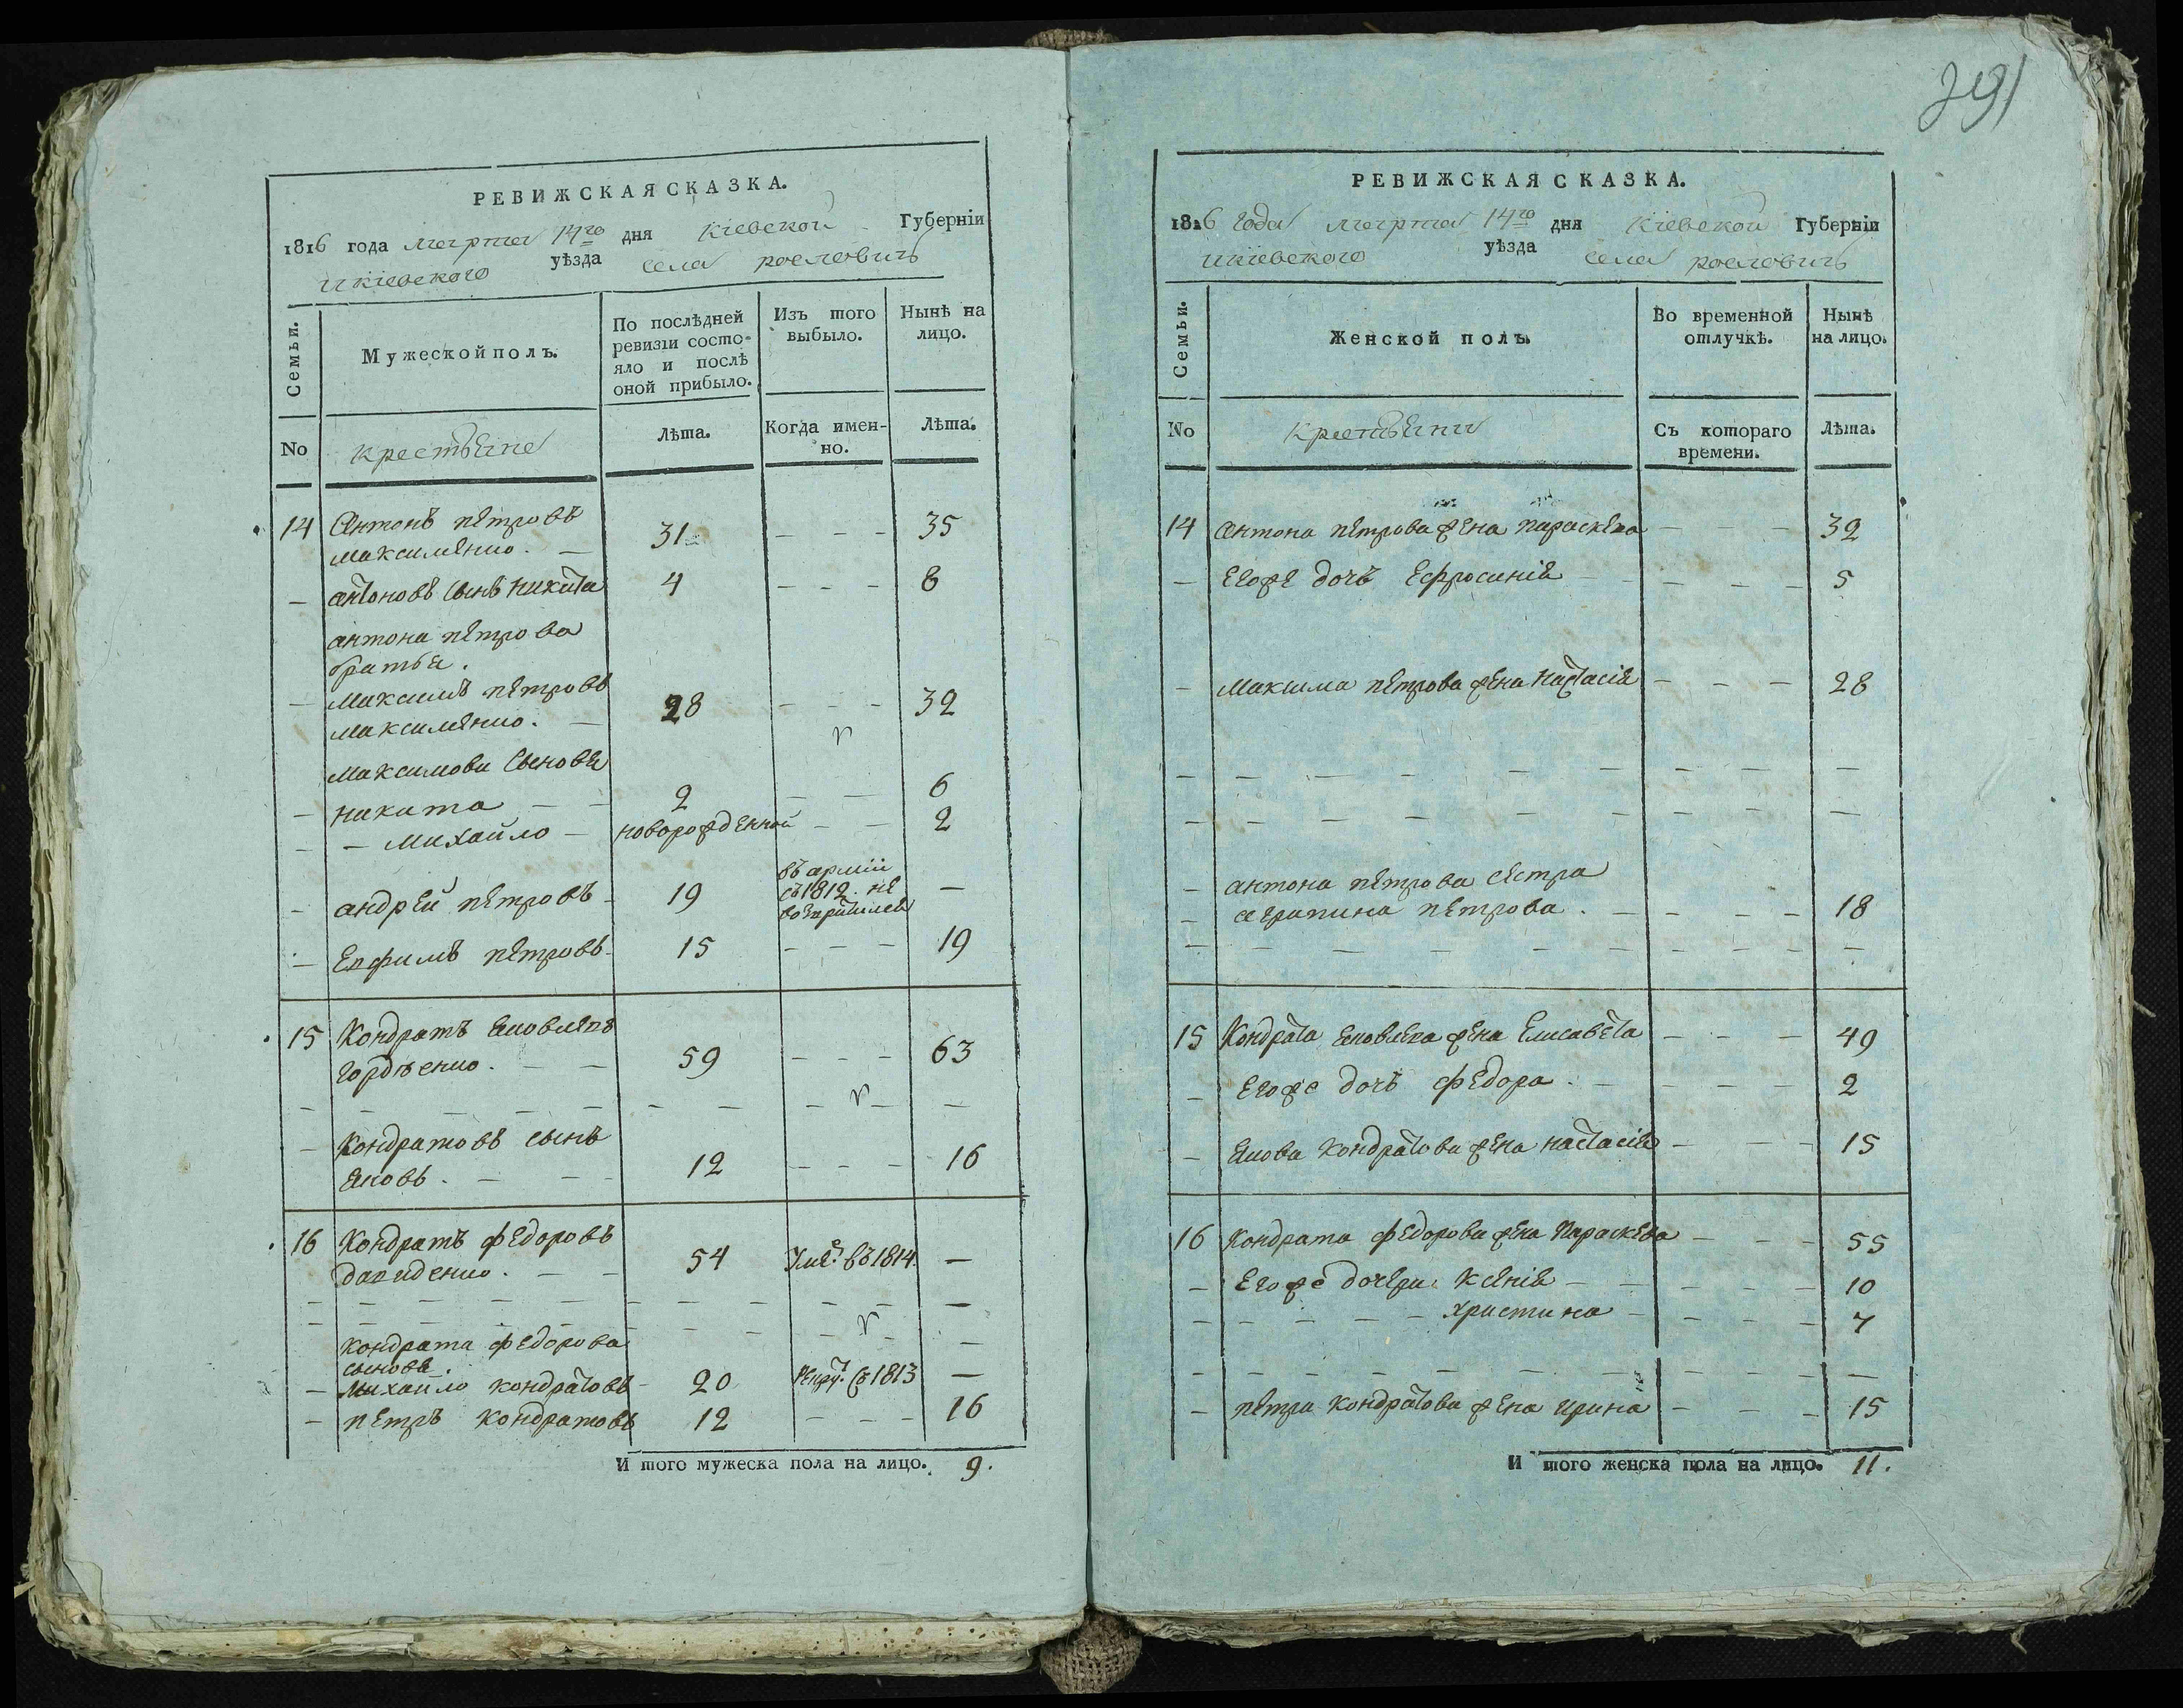 РЕВИЖСКАЯ СКАЗКА.
1816 года марта 14го дня Кіевской Губерніи
икіевского уѣзда села рословичь
Семьи.
Мужеской полъ.
По послѣдней ревизіи состояло и послѣ оной прибыло.
Изъ того выбыло.
Нынѣ на лицо.
No
крестьяне
Лѣта.
Когда именно.
Лѣта.
14 Антонъ петровъ
максименко. — 31 - - - 35
— антоновъ сынъ никита 4 - - - 8
антона петрова
братья.
— Максимъ петровъ
максименко. — 28 - - - 32
максимови сыновя
— никита — — 2 — — 6
— — михайло — новорожденной — — 2
— андрей петровъ - 19 въ арміи
съ 1812. не
—
— Евфимъ петровъ - 15 - - - 19
15 Кондратъ яковлевъ
гордѣенко. — — 59 - - - 63
— Кондратовъ сынъ
яковъ. — — 12 - - - 16
16 Кондратъ федоровъ
давиденко. — — 54 Уме. въ 1814. —
кондрата федорова
сыновя.
— михайло кондратовъ - 20 рекру. съ 1813 —
— петръ кондратовъ 12 - - - 16
И того мужеска пола на лицо. 9.
291
РЕВИЖСКАЯ СКАЗКА.
1816 года марта 14го дня Кіевской Губерніи
икіевского уѣзда села рословичь
Семьи.
Женской полъ.
Во временной отлучкѣ.
Нынѣ на лицо.
No
крестьяни
Съ котораго времени.
Лѣта.
14 Антона петрова жена параскева — — — 32
— Егоже дочь Ефросинія — — — 5
— Максима петрова жена настасія — — — 28
— антона петрова сестра
— агрипина петрова. — — — 18
15 Кондрата яковлева жена Елисавета — — — 49
— Егоже дочь федора. — — — 2
— якова кондратова жена настасія — — — 15
16 Кондрата федорова жена Параскева — — — 55
— Егоже дочери: ксенія — — — 10
— — — — христина — — — 7
— петра кондратова жена ирина — — — 15
И того женска пола на лицо. 11.